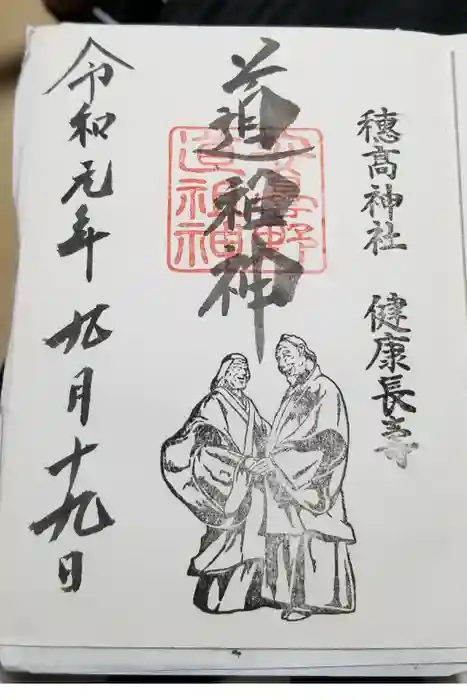 穂高神社 健康長寿
道祖神
安曇野
道祖神
令和元年九月十九日